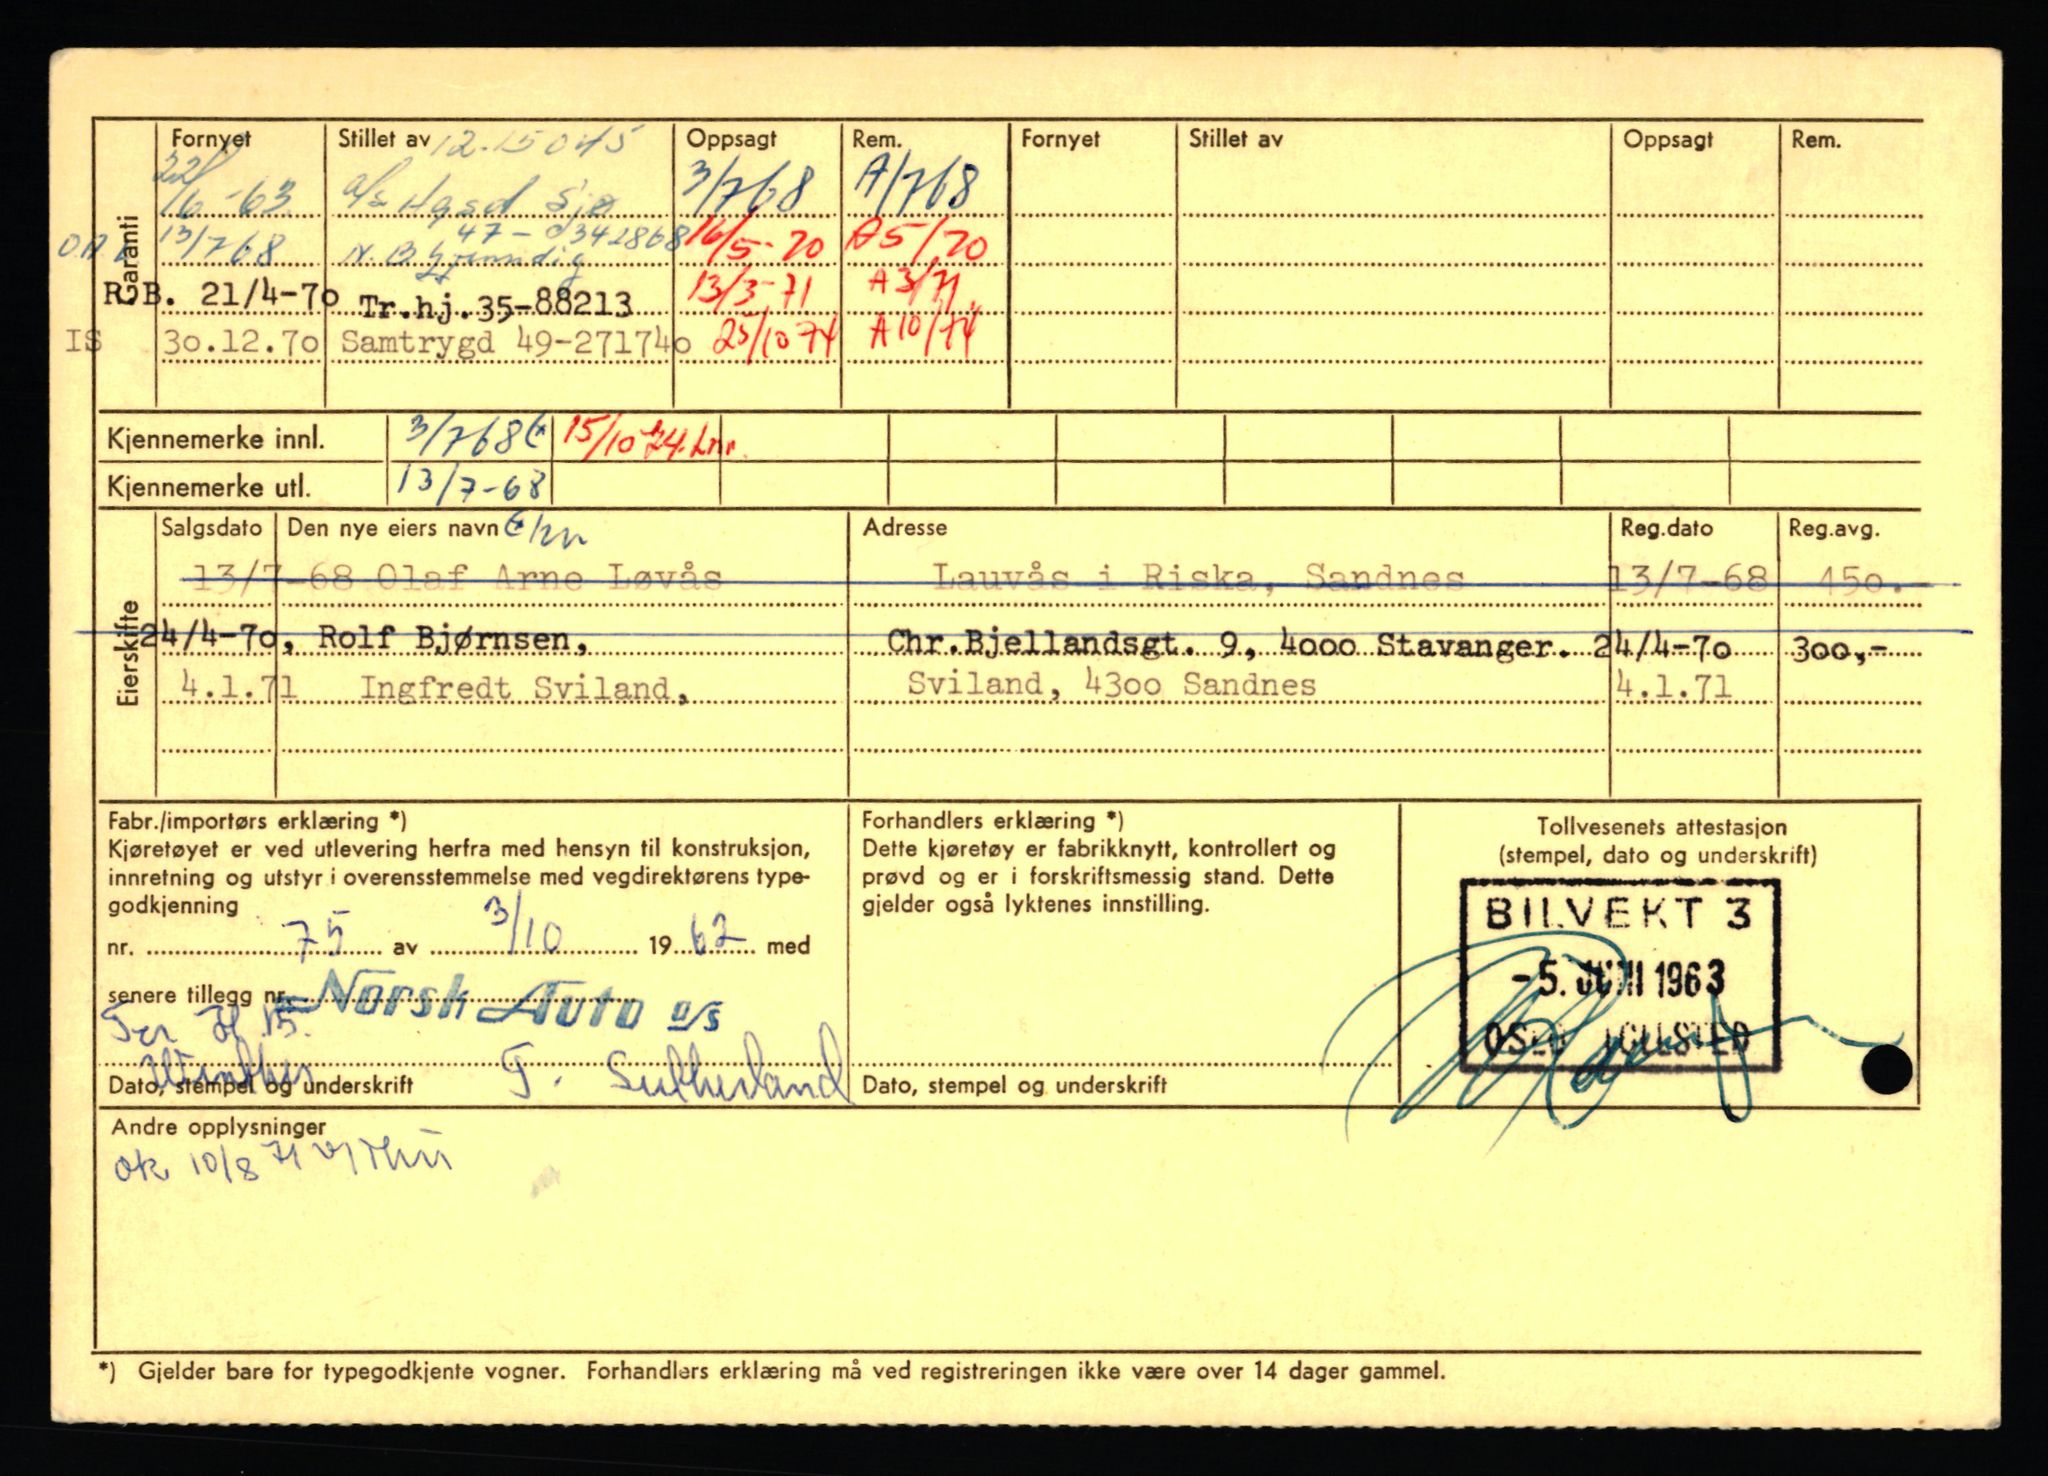 Garanti
Fornyet Stillet av 12-15045 Oppsagt Rem. Fornyet Stillet av Oppsagt Rem.
22/6-63 3/768 A/768
13/768 47-342868 16/5-70 A5/70
R.B. 21/4-70 Tr.hj.35-88213 13/3-71 A3/71
IS 30.12.70 Samtrygd 49-271740 25/10 74 A10/74
Kjennemerke innl. 3/768 15/10 74.
Kjennemerke utl. 13/7-68
Eierskifte
Salgsdato Den nye eiers navn Adresse Reg.dato Reg.avg.
13/7-68 Olaf Arne Løvås Lauvås i Riska, Sandnes 13/7-68 450.-
24/4-70, Rolf Bjørnsen, Chr.Bjellandsgt. 9, 4000 Stavanger. 24/4-70 300,-
4.1.71 Ingfredt Sviland, Sviland, 4300 Sandnes 4.1.71
Fabr./importørs erklæring *)
Kjøretøyet er ved utlevering herfra med hensyn til konstruksjon,
innretning og utstyr i overensstemmelse med vegdirektørens type-
godkjenning
nr. 75 av 3/10 1962 med
senere tillegg nr.
Norsk Auto a/s
T. Sutherland
Dato, stempel og underskrift
Forhandlers erklæring *)
Dette kjøretøy er fabrikknytt, kontrollert og
prøvd og er i forskriftsmessig stand. Dette
gjelder også lyktenes innstilling.
Dato, stempel og underskrift
Tollvesenets attestasjon
(stempel, dato og underskrift)
BILVEKT 3
-5. JUNI 1963
OSLO TOLLSTED
Andre opplysninger
ok 10/8 71
*) Gjelder bare for typegodkjente vogner. Forhandlers erklæring må ved registreringen ikke være over 14 dager gammel.